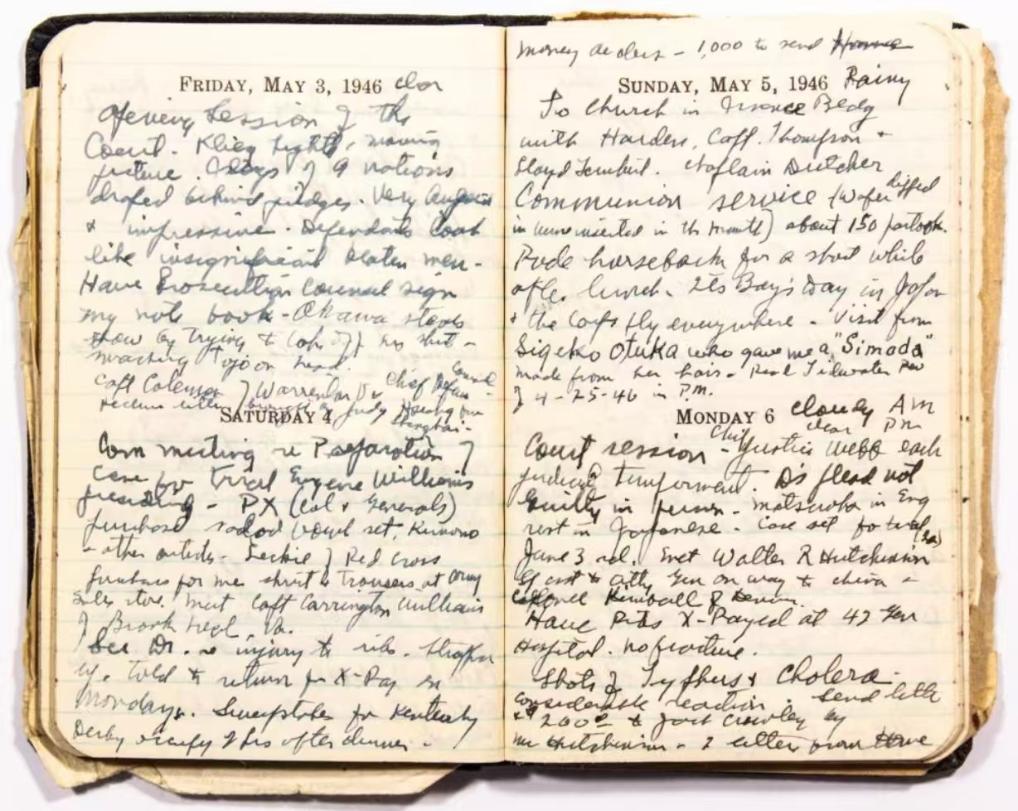 FRIDAY, MAY 3, 1946 clear
Opening Session of the
Court. Klieg lights, moving
picture. Flags of 9 nations
draped behind judges. Very August
& impressive. Defendants look
like insignificant beaten men.
Have Prosecution Counsel sign
my note book - Okawa steals
show by trying to take off his shirt -
smacking Tojo on head.
Capt Coleman of Warrenton Va Chief Defense Counsel.
Receive letter
SATURDAY 4
Com meeting re Preparation of
case for trial Eugene Williams
presiding - PX (Col & Generals)
purchase salad bowl set, Kimono
& other articles - Leckie of Red Cross
purchases for me shirt & trousers at army
sales store. Meet Capt Carrington Williams
of Brook Va.
See Dr. re injury to ribs.
up. Told to return for X-Ray on
Monday. Sweepstakes for Kentucky
Derby occupy 2 hrs after dinner.
money orders - 1,000 to send Home
SUNDAY, MAY 5, 1946 Rainy
To Church in Finance Bldg
with Harders, Capt. Thompson &
Lloyd Chaplain Dutcher
Communion service (wafer dipped
in wine inserted in the mouth) about 150 partook.
Rode horseback for a short while
after lunch. Its Boy's Day in Japan
& the Carps fly everywhere - Visit from
Sigeko Otuka who gave me a "Simada"
made from her hair - Read Tidewater Rev
of 4-25-46 in P.M.
MONDAY 6 cloudy AM
clear PM
Court session - Chief Justice Webb each
judicial Ds plead not
guilty in person - Matsuoka in Eng
rest in Japanese. Case set for trial
June 3rd. Meet Walter R Hutchinson
asst to atty Gen on way to China &
Colonel Kimball
Have Ribs X-Rayed at 42 Gen
Hospital. No fracture.
Shots of Typhus & Cholera -
considerable reaction. Send letter
& $200 to Jack Crowley by
Mr Hutchinson - 2 letters from Home